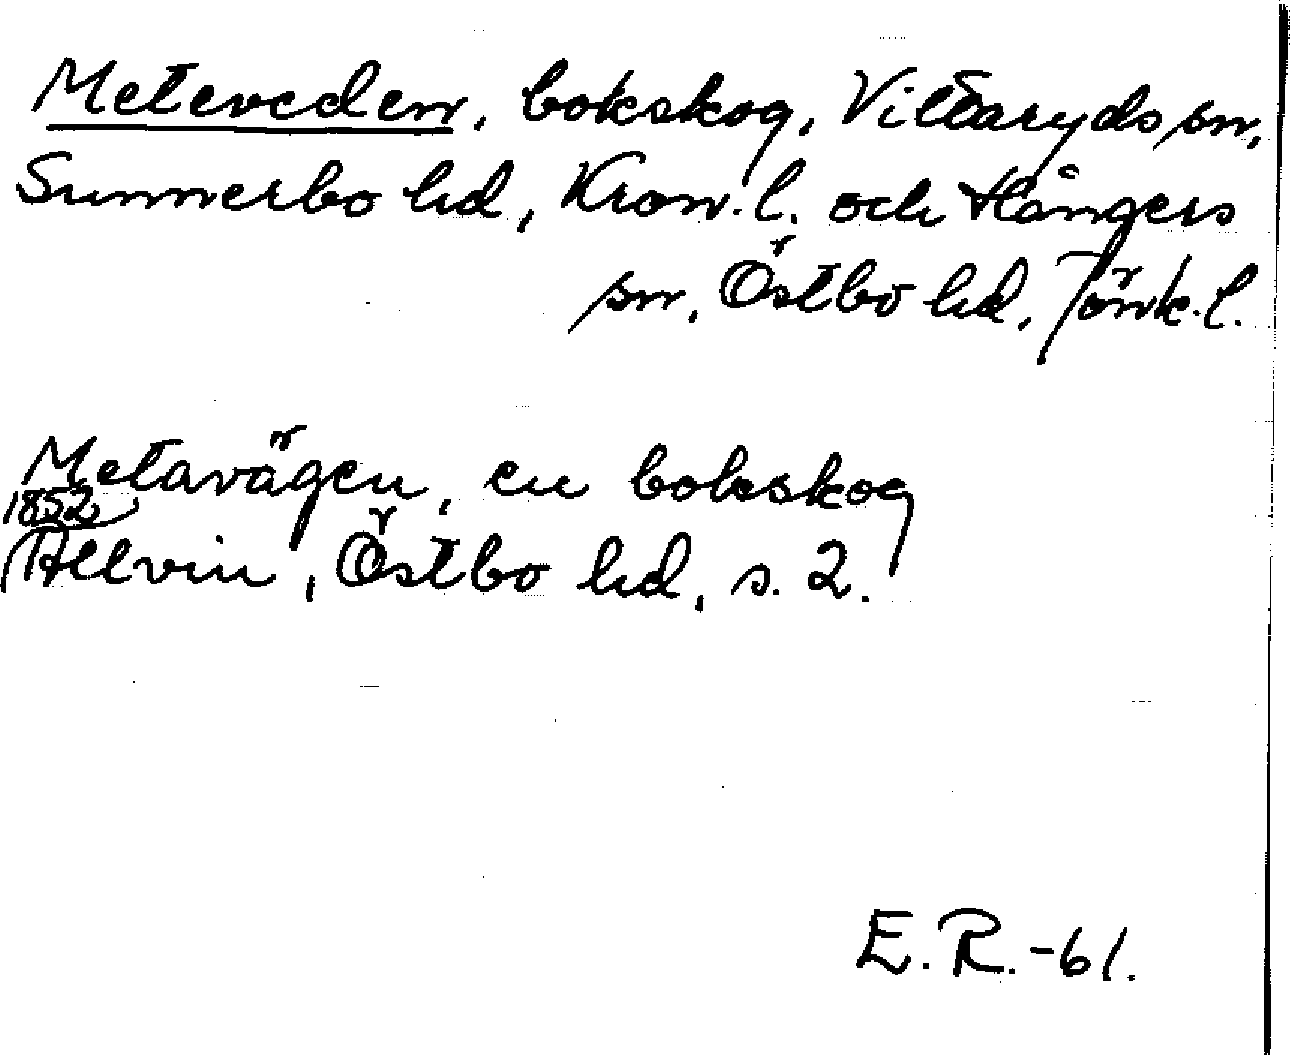 Meteveden, bokskog, Vittaryds sn,
Sunnerbo hd, Kron.l. och Hångers
sn, Östbo hd, Jönk.l.
Metavägen, en bokskog
1852
Allvin, Östbo hd, s. 2.
E.R.-61.